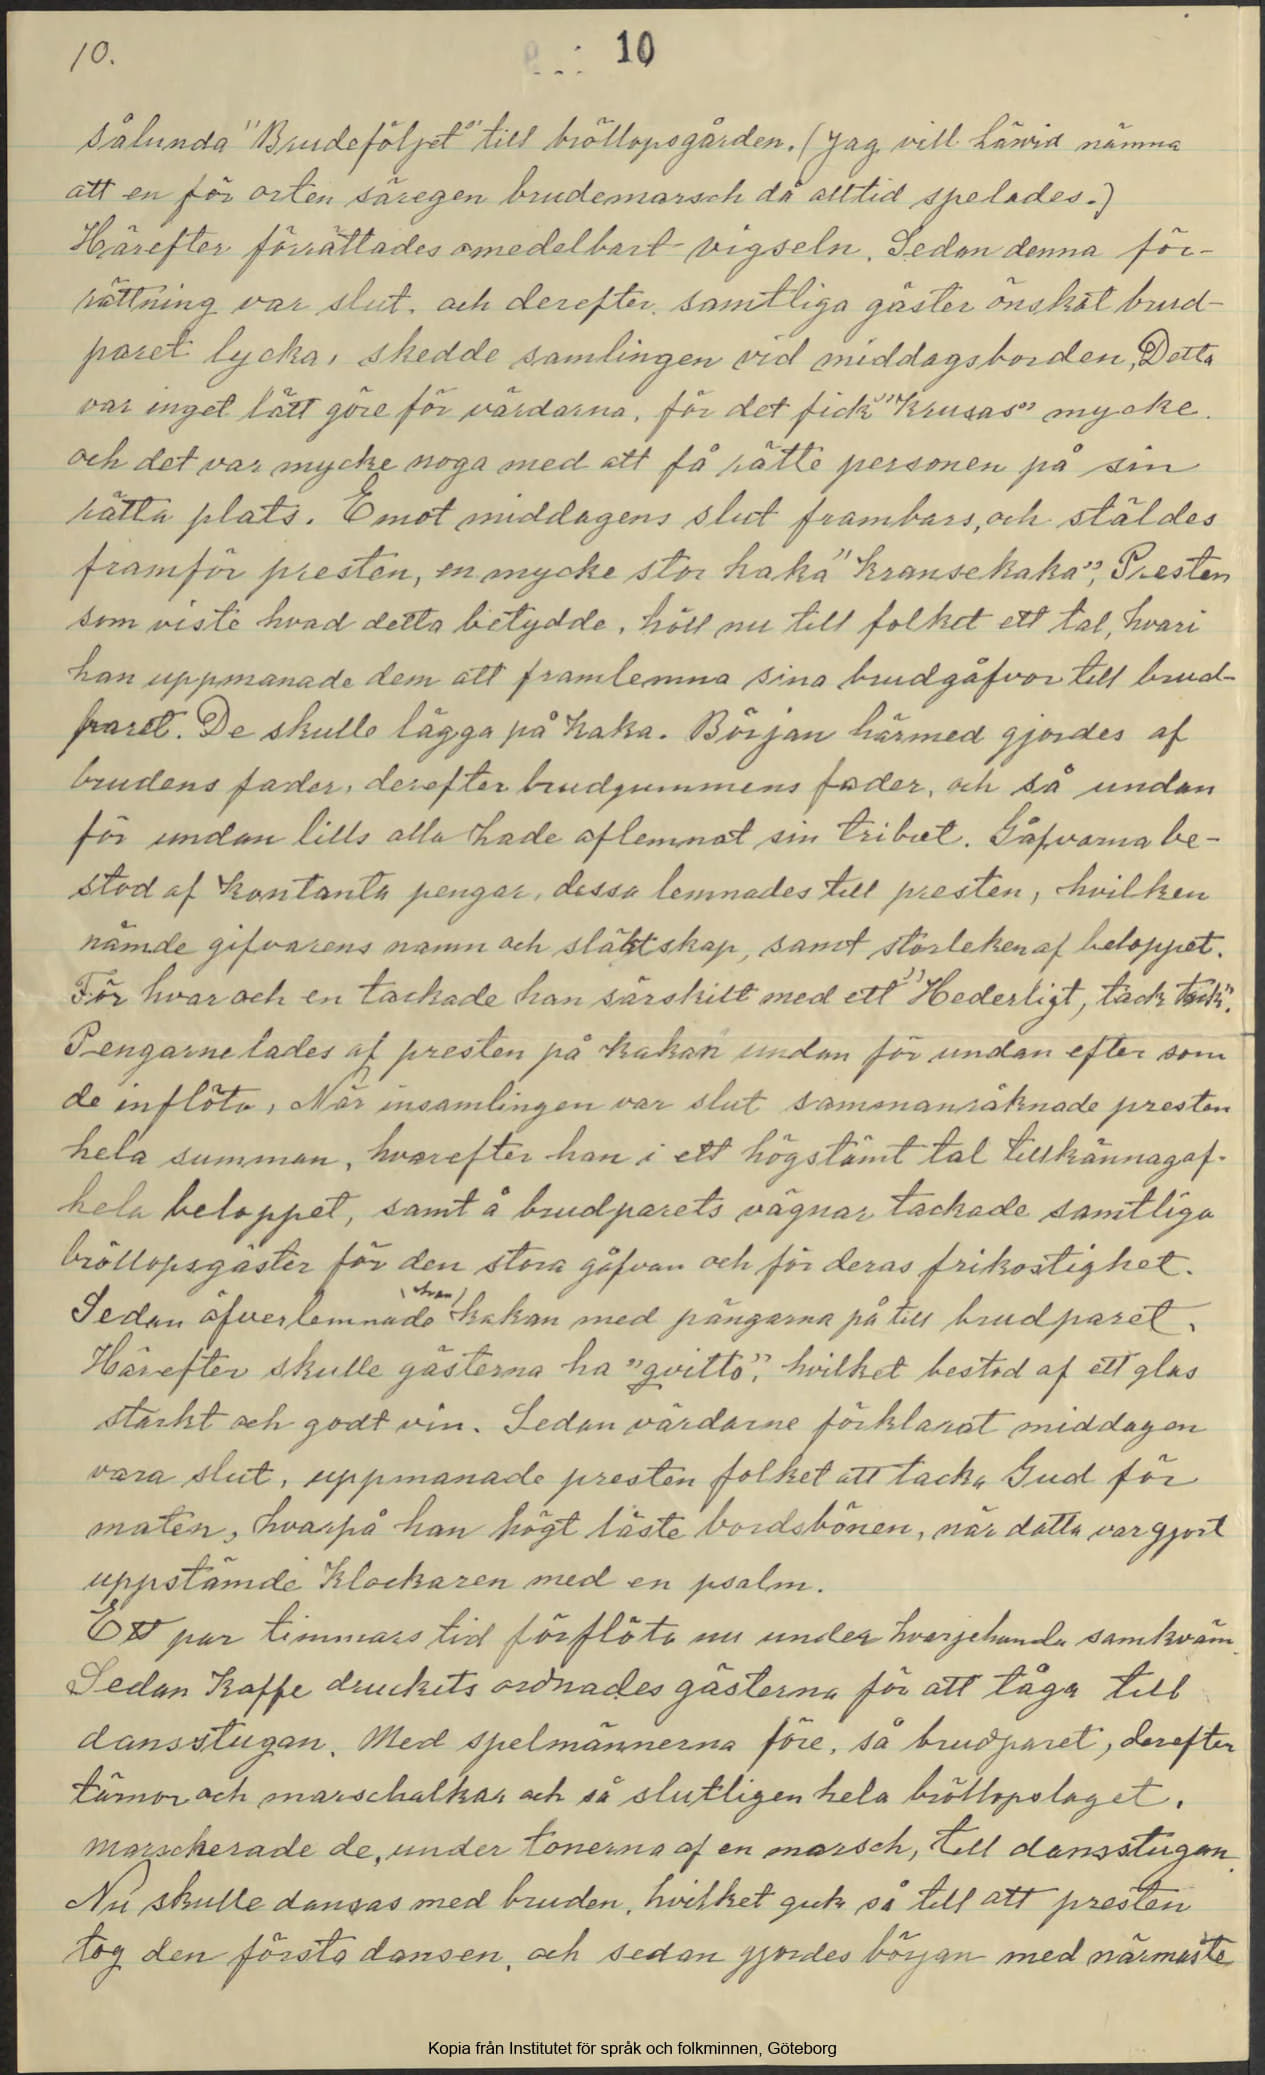 10.
10
sålunda "Brudeföljet" till bröllopsgården. (Jag vill härvid nämna
att en för orten säregen brudemarsch då alltid spelades.)
Härefter förrättades omedelbart vigseln. Sedan denna för-
rättning var slut, och derefter, samtliga gäster önskat brud-
paret lycka, skedde samlingen vid middagsborden, Detta
var inget lätt göre för värdarna, för det fick "krusas" mycke.
och det var mycke noga med att få rätte personen på sin
rätta plats. Emot middagens slut frambars, och stäldes
framför presten, en mycke stor kaka "kransekaka", Presten
som viste hvad detta betydde, höll nu till folket ett tal, hvari
han uppmanade dem att framlemna sina brudgåfvor till brud-
paret. De skulle lägga på kaka. Början härmed gjordes af
brudens fader, derefter brudgummens fader, och så undan
för undan tills alla hade aflemnat sin tribut. Gåfvorna be-
stod af kontanta pengar, dessa lemnades till presten, hvilken
nämde gifvarens namn och släktskap, samt storleken af beloppet.
För hvar och en tackade han särskilt med ett "Hederligt, tack tack".
Pengarne lades af presten på kakan undan för undan efter som
de inflöto, När insamlingen var slut sammanräknade presten
hela summan, hvarefter han i ett högstämt tal tillkännagaf
hela beloppet, samt å brudparets vägnar tackade samtliga
bröllopsgäster för den stora gåfvan och för deras frikostighet.
Sedan öfverlemnade (han) kakan med pängarna på till brudparet.
Härefter skulle gästerna ha "gvitto", hvilket bestod af ett glas
starkt och godt vin. Sedan värdarne förklarat middagen
vara slut, uppmanade presten folket att tacka Gud för
maten, hvarpå han högt läste bordsbönen, när detta var gjort
uppstämde klockaren med en psalm.
Ett par timmars tid förflöto nu under hvarjehanda samkväm.
Sedan kaffe druckits ordnades gästerna för att tåga till
dansstugan. Med spelmännerna före, så brudparet, derefter
tärnor och marschalkar och så slutligen hela bröllopslaget,
marscherade de, under tonerna af en marsch, till dansstugan.
Nu skulle dansas med bruden, hvilket gick så till att presten
tog den första dansen, och sedan gjordes början med närmaste
Kopia från Institutet för språk och folkminnen, Göteborg